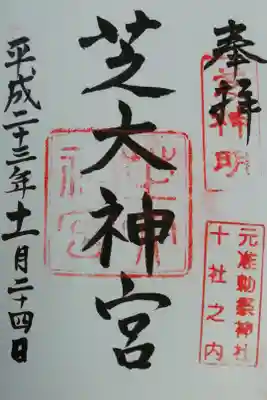 奉拝
芝神明
元准勅祭神社
十社之内
芝大神宮
平成二十三年十一月二十四日